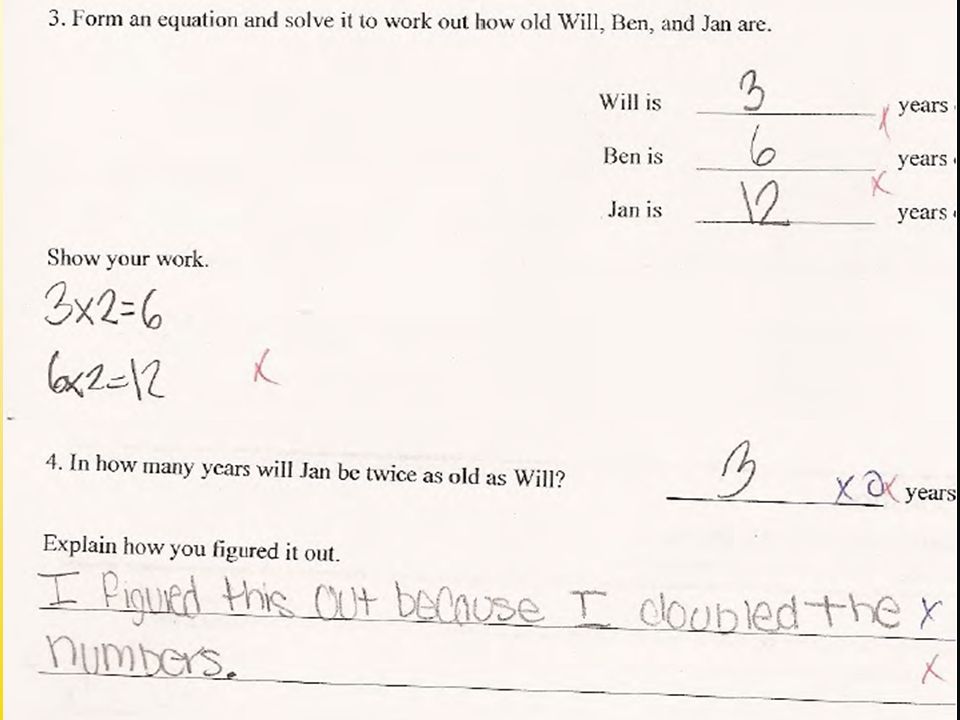 3. Form an equation and solve it to work out how old Will, Ben, and Jan are.
Will is 3 years
Ben is 6 years
Jan is 12 years
Show your work.
3x2=6
6x2=12 x
4. In how many years will Jan be twice as old as Will? 3 x x years
Explain how you figured it out.
I figured this out because I doubled the x
numbers. x